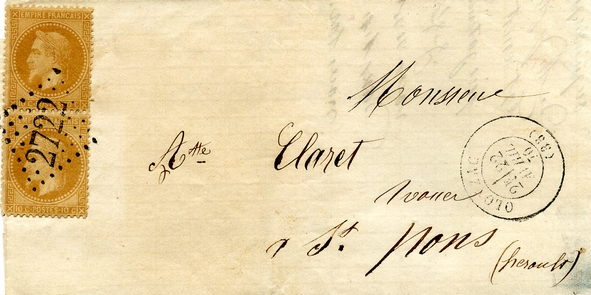 EMPIRE FRANÇAIS
2722
10 C. POSTES 10 C.
Monsieur
Atte Claret
à St. Pons (herault)
OLONZAC (33)
2E
22
AVRIL
70